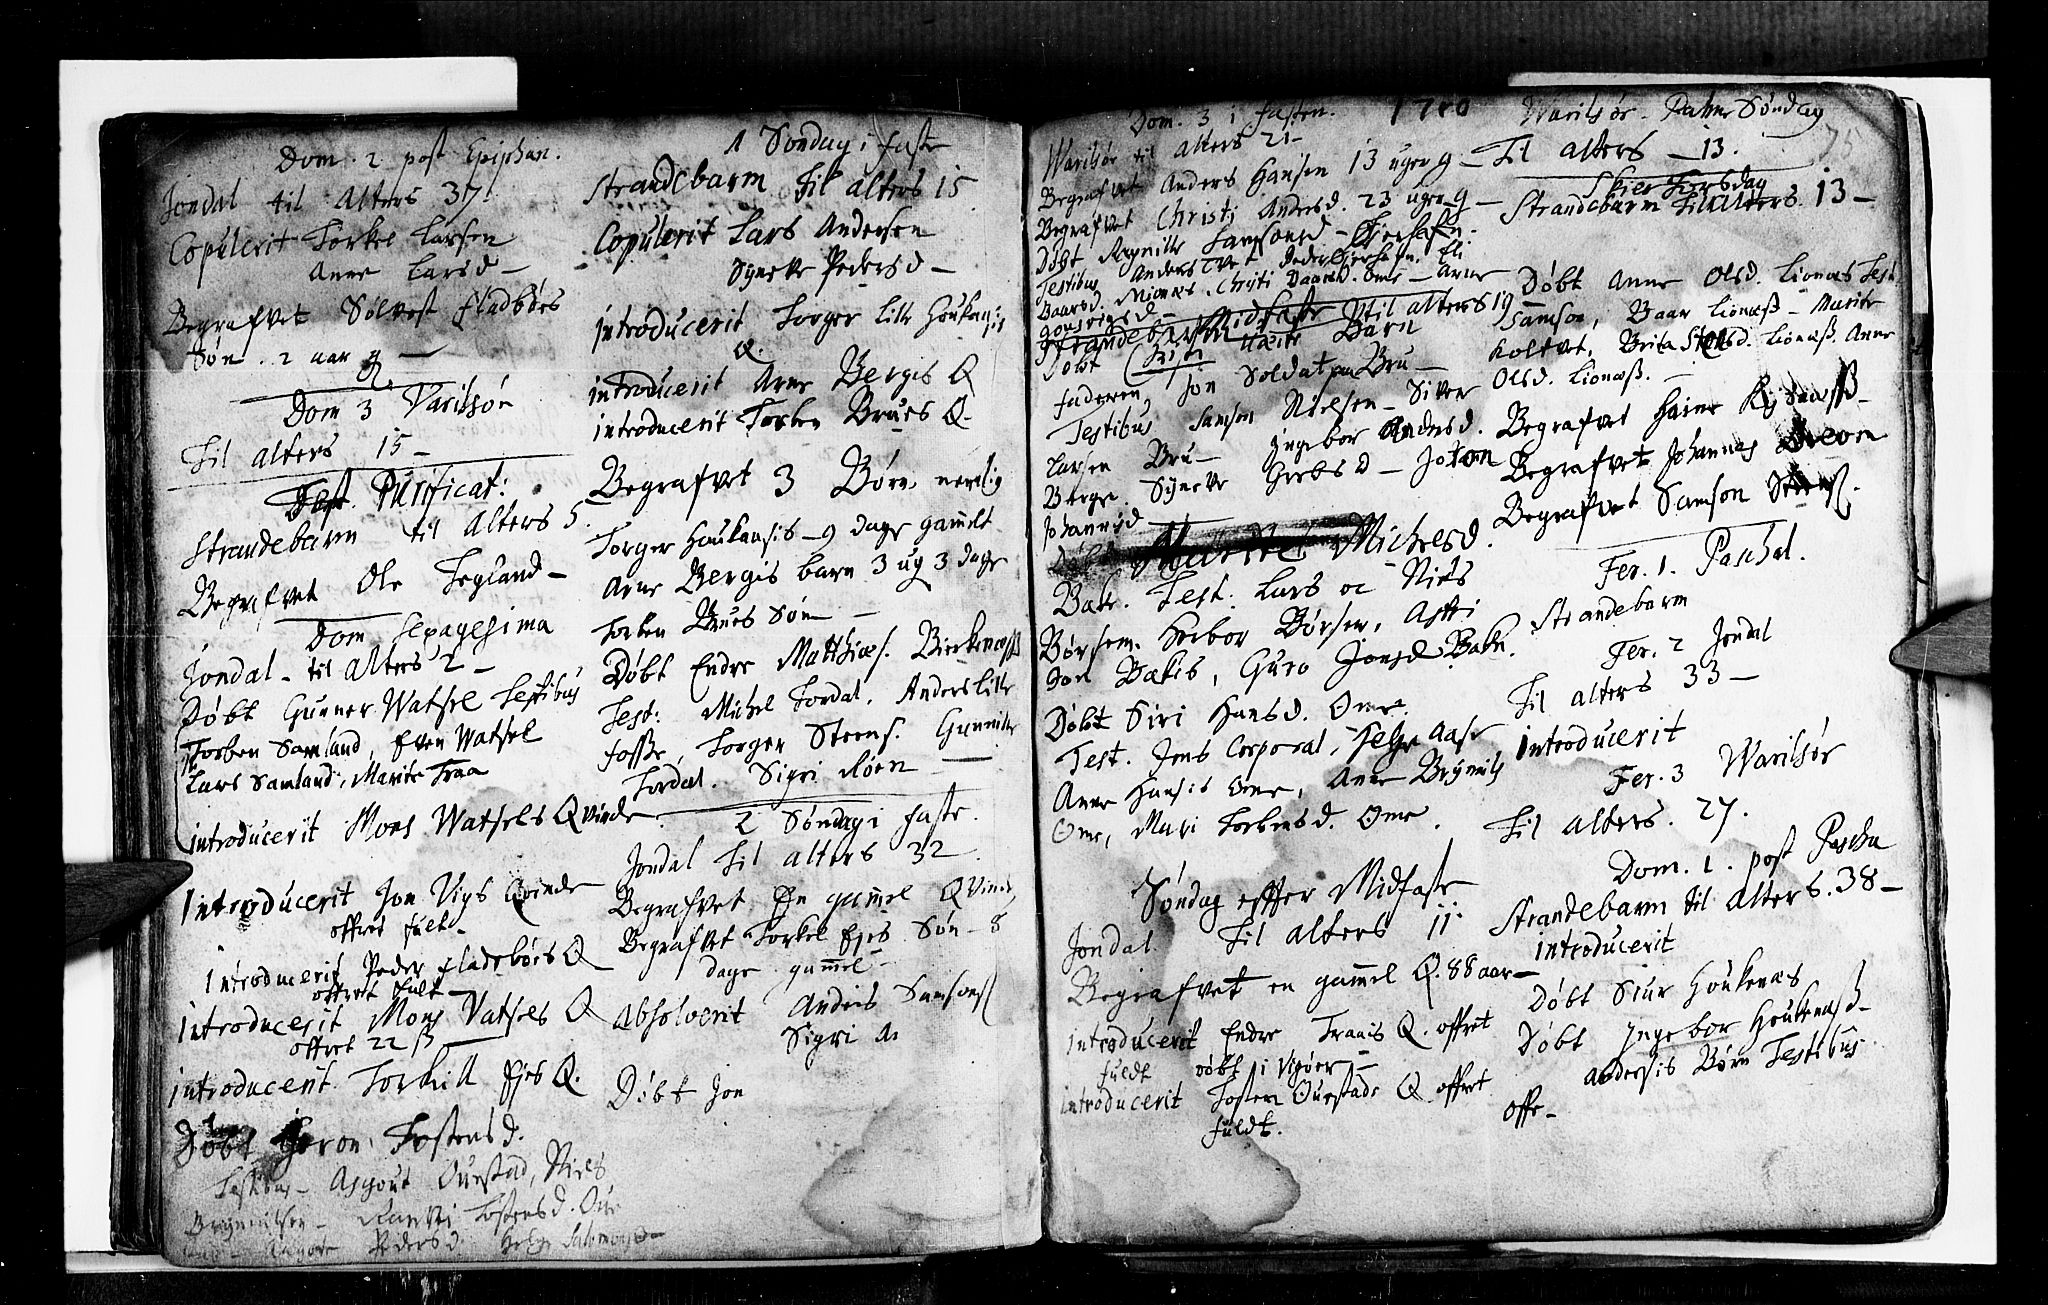 Dom. 2 post Epiphan.
Jondal til Alters 37.
Copulerit Torkel Larsen
Anne Larsd –
Begrafvet Sølvest fladebøes
Søn. 2 aar g –
Dom 3 Varilsør
Til alters 15 –
Fest. Purificat:
Strandebarm til Alters 5.
Begrafvet Ole Tegland –
Dom sexagesima
Jondal – til Alters 2 –
Døbt Gunner Watsel Testibus
Torben Samland, Even Watsel
Lars Samland, Marite Traa
introducerit Mons Watsels Qvinde
Introducerit Jon Vigs Qvinde
offret fult –
Introducerit Peder fladebøes Q
offret fult –
introducerit Mons Vatsels Q
offret 22 ß –
introducerit Torkill Ejes Q.
Døbt Joron Tostensd.
Testibus – Asgout Ourstad, Niels
Brynnilsen – Ranvei Tostensd. Our
Pedersd. Helge Salomons –
1 Søndag i faste
Strandebarm Til alters 15
Copulerit Lars Andersen
Synneve Pedersd –
introducerit Torger Lille Houkansis
Q.
introducerit Arne Bergis Q
introducerit Torben Brues Q.
Begrafvet 3 Børn, nemlig
Torger Houkansis – 9 dage gamelt
Arne Bergis barn 3 ug 3 dage
Torben Brues Søn –
Døbt Endre Matthias. Birkenæss
Test: Michel Tordal. Anders Lille
fosse, Torger Steens. Gunnille
Tordal. Sigri Røen –
2 Søndag i faste.
Jondal Til alters 32
Begrafvet En gammel Qvinde
Begrafvet Torkel Ejes Søn – 8
dage gammel –
Absolverit Anders Samsons
Sigri A
Døbt Jon
Dom. 3 i fasten. 1710
Warilsør til alters 21 –
Begrafvet Anders Hansen 13 uger g –
Begrafvet Christi Andersd. 23 uger g –
Døbt Ragnille Samsonsd –
Testibus Anders
Baarsd. Christi Baarsd. Ome – Arne
Strandebarm Midfaste til alters 19
Døbt Barn
faderen, Jon Soldat paa Bru –
Testibus Samson Nielsen – Siver
Larsen Bru – Ingebor Andersd.
Berge. Synneve –
Johannisd –
Marite Michelsd.
Bake. Test. Lars oc Niels
Børsem. Herbor Børsem, Astri
Jon Bakis, Guro Jonsd Bake.
Døbt Siri Hansd. Ome
Test. Jens Corporal, Helge Aase
Anne Hansis Ome, Anne Brynnils
Ome, Mari Torbensd. Ome.
Søndag effter Midfaste
Jondal Til alters 11
Begrafvet en gammel Q. 88 aar –
introducerit Endre Traais Q. offret
fuldt døbt i Vigøer –
introducerit Tosten Ourstads Q offret
fuldt.
Warilsør. Palme Søndag
75
Til alters – 13.
Skier Torsdag
Strandebarm Til Alters. 13 –
Døbt Anne Olsd. Lionæs Test
Samson, Baar Lionæss – Marite
Koltvet, Brita Lionæss. Anne
Olsd. Lionæss. –
Begrafvet
Begrafvet Johannes
Begrafvet Samson
Fer. 1. Paschat.
Strandebarm
Fer. 2 Jondal
Til alters 33 –
introducerit
Fer. 3 Warilsør
Til alters. 27.
Dom. 1. post Pascha
Strandebarm til alters. 38 –
introducerit
Døbt Siur Houkenæs
Døbt Ingebor Houkenæss –
Andersis Børn Testibus
offr –